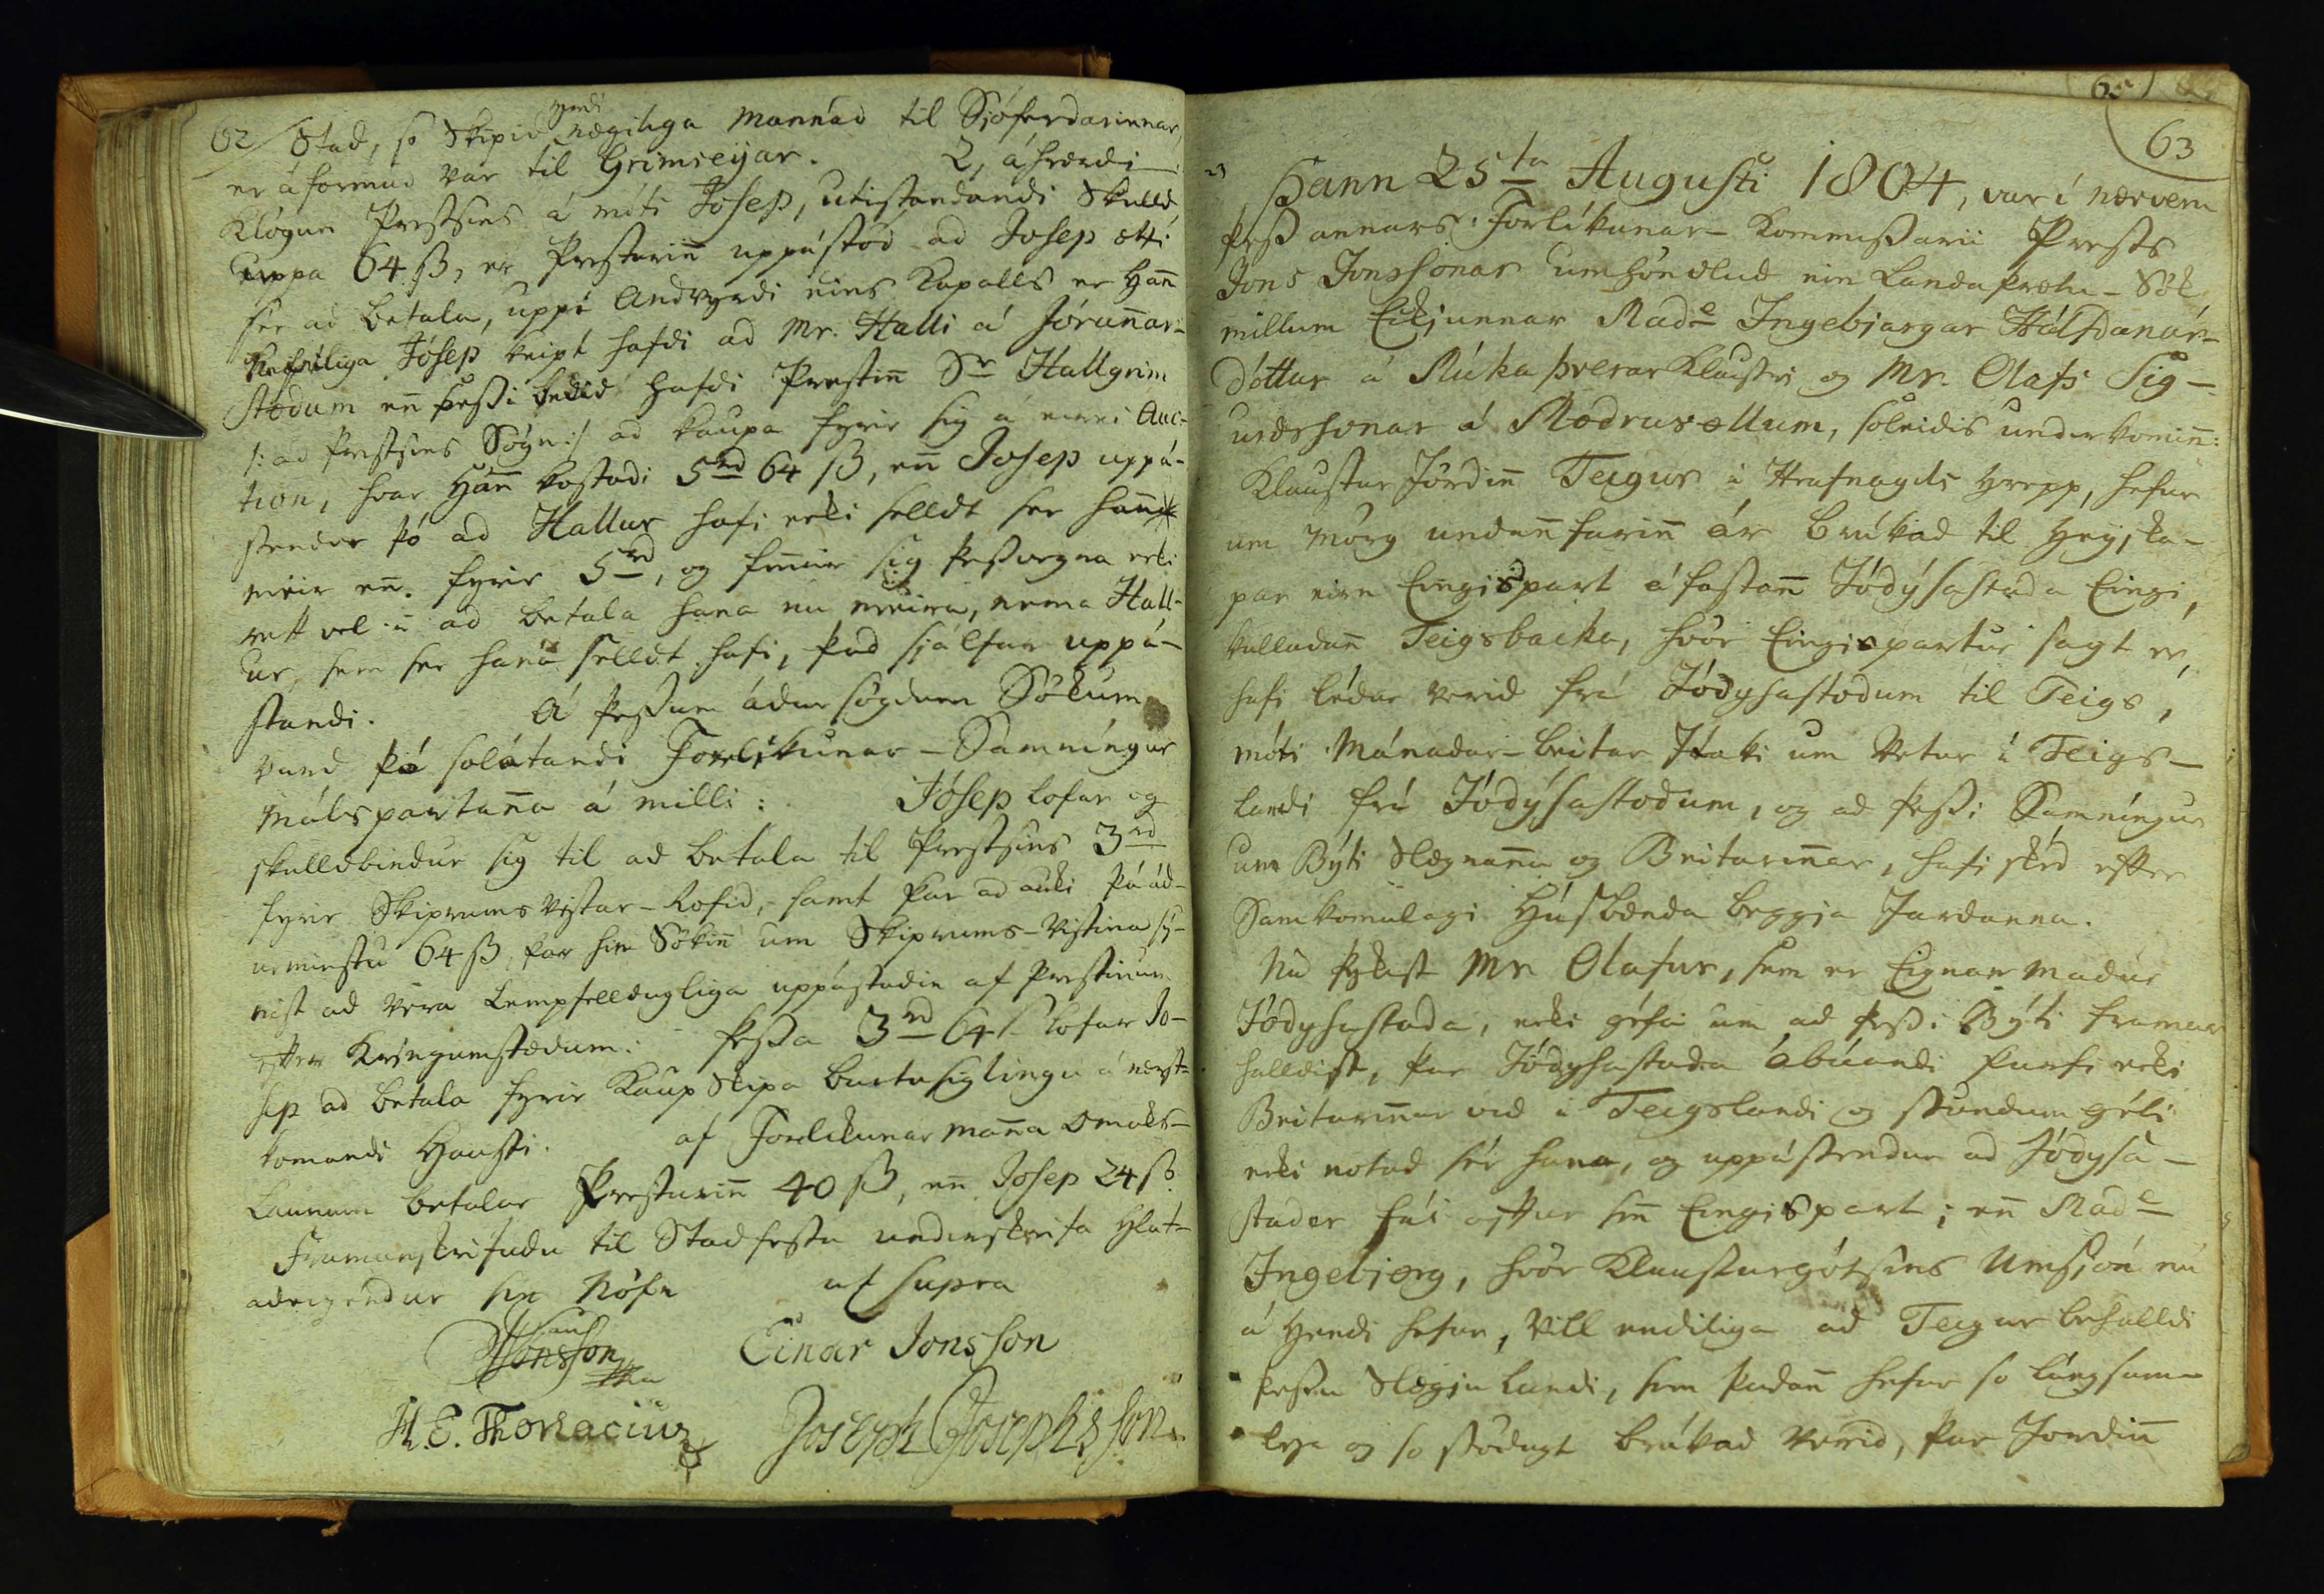 62
yrdi
Stad, so Skipid nægiliga mannad til Siöferdarinnar,
er áformud var til Grimseyar. 2, áhrærdi
Klögun Prestsins á móti Josep, útistandandi Skulld
uppá 64 ß, er Presturin̄ uppástód ad Josep ætti
sér ad betala, uppí Andvyrdi eins Kapalls er Han̄
Josep keipt hafdi ad Mr. Halli á Jórun̄ar-
stödum en̄ þessi bedid hafdi Prestin̄ Sr Hallgrim
/: ad Prestsins Sögn :/ ad kaupa fyrir sig á einri Auc-
tion, hvar Han̄ kostadi 5rd 64 ß, en̄ Josep uppá-
stendur þó ad Hallur hafi ecki selldt sér han̄
meir en̄ fyrir 5rd, og sig þessvegna ecki
ad betala hana nú meira, nema Hall-
ur, sem sér hana selldt hafi, þad siálfur uppá-
standi. Á þessum ádursögdum Sökum
vard þá solátandi Forlíkunar-Samníngur
Málspartan̄a á milli: Jósep lofar og
skulldbindur sig til ad betala til Prestsins 3rd
fyrir Skiprums Vistar-Rofid, samt þar ad auki þá ád-
urnefndu 64 ß, þar hin Sökin̄ um Skiprums-Vistina sý-
nist ad vera uppástadin af Prestinum
epter Kríngumstædum: þessa 3rd 64 ß lofar Jo-
sep ad betala fyrir Kaup Skipa burtusiglingu á næst-
komandi Hausti. af Forlikunar man̄a Ómaks-
Launum betalar Presturin̄ 40 ß, en̄ Josep 24 ß.
Framanskrifadu til Stadfestu underskrifa Hlut-
adeigendur sín Nöfn ut supra
Jonsson Einar Jonsson
H. E. Thorlacius Joseph Josephsson
63
Þann 25ta Augusti 1804, var í nærveru
þess annars Forlíkunar-Kommissarii Prests
Jóns Jonssonar umhöndlud ein Landaþrætu-Sök
millum Eckjunnar Made Ingebjargar Hálfdanar-
dóttur á Múkaþverár Klaustri og Mr. Olafs Sig-
urdssonar á Mödruvöllum, soleidis underkomin̄:
Klaustur Jördin̄ Teigur í Hrafnagils Hrepp, hefur
um mörg undan̄farin̄ ár brúkad til Heyska-
par eirn Eingispart áfastan̄ Jódýsastada Eingi,
kalladan̄ Teigsbacka, hvör Eingispartur sagt er,
hafi lédur verid frá Jódysastödum til Teigs,
móti Mánadar-beitar Ítaki um Vetur í Teigs-
landi frá Jódýsastödum, og ad þessi Samníngur
um Býti Slægnan̄a og Beitarin̄ar, hafi skéd epter
Samkomulagi Húsbænda beggja Jardanna.
Nú þykist Mr Olafur, sem er Eignar Madur
Jódysastada, ecki géfa um ad þessi Býti framar
halldist, þar Jódysastada ábúandi þurfi ecki
Beitarin̄ar vid í Teigslandi og stundum géti
ecki notad sér hana, og uppástendur ad Jódysa-
stader fái aptur sin̄ Eingispart; en̄ Made
Ingebjörg, hvör Klausturgótsins Umsjón nú
á Hendi hefur, vill endiliga ad Teigur behalldi
þessu Slægju Landi, sem þadan̄ hefur so lángsam-
lega og so stödugt brúkad verid, þar Jördin̄